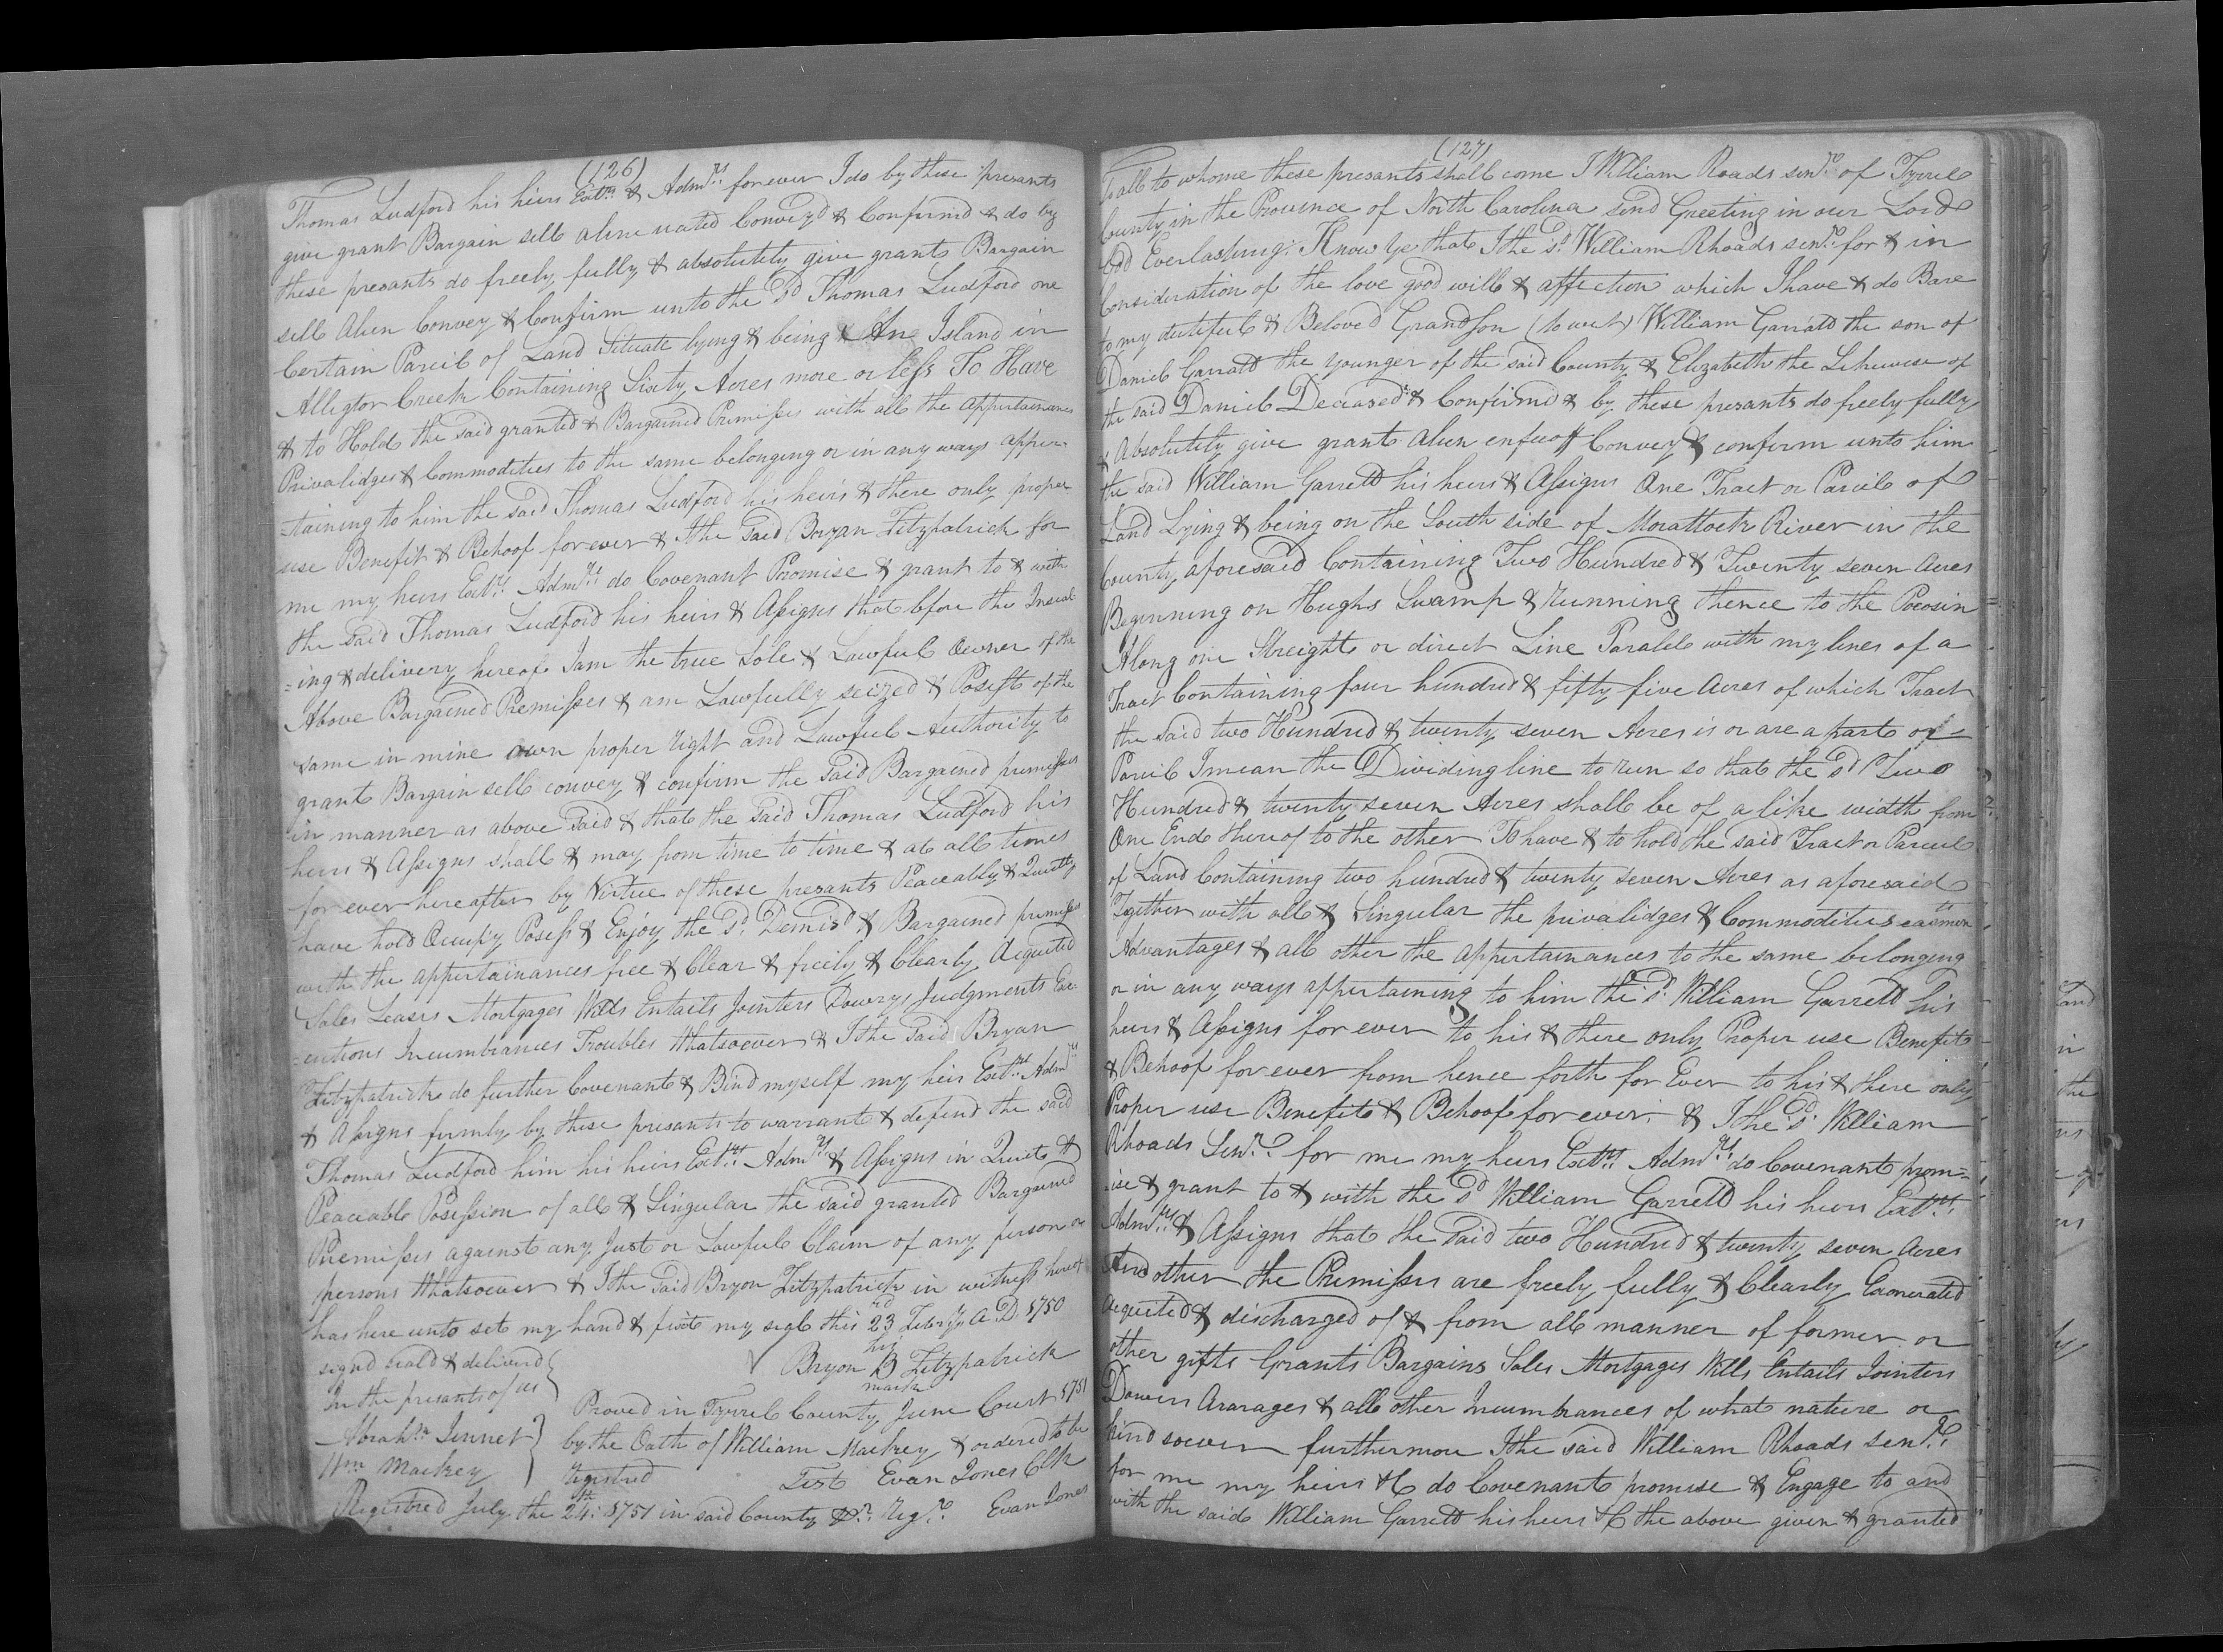 (126)
Thomas Ludford his heirs Exto.rs & Adm.rs for ever I do by these presants
give grant Bargain sell alien nated Convey'd & Confirm'd & do by
these presants do freely fully & absolutely give grant Bargain
sell Alien Convey & Confirm unto the Sd Thomas Ludford one
Certain Parcil of Land Situate lying & being & An Island in
Alligtor Creek Containing Sixty Acres more or less To Have
& to Hold the said granted & Bargained Premisses with all the appertainances
Privalidges & Commodities to the same belonging or in any ways apper-
-taining to him the said Thomas Ludford his heirs & there only proper
use Benefit & Behoof for ever & I the said Bryan Fitzpatrick for
me my heirs Extrs. Admrs. do Covenant Promise & grant to & with
the said Thomas Ludford his heirs & Assigns that before the Inseal
=ing & delivery hereof I am the true Sole & Lawful Owner of the
Above Bargained Premisses & am Lawfully seized & Posest of the
same in mine own proper right and Lawful Authority to
grant Bargain sell convey & confirm the said Bargained premisses
in manner as above said & that the said Thomas Ludford his
heirs & Assigns shall & may from time to time & at all times
for ever hereafter by Virtue of these presants Peaceably & Quietly
have hold Occupy Posess & Enjoy the Sd. Demisd & Bargained premisses
with the appertainances free & Clear & freely & Clearly Acquited
Sales Leases Mortgages Wills Entails Jointers Dowrys Judgments Exe-
-cutions Incumbrances Troubles Whatsoever & I the said Bryan
Fitzpatrick do further Covenant & Bind myself my heirs Extrs. Admrs
& Assigns firmly by these presants to warrant & defend the said
Thomas Ludford him his heirs Extrs. Admrs & Assigns in Quiet &
Peaceable Posession of all & Singular the said granted Bargained
Premisses against any Just or Lawful Claim of any person or
persons Whatsoever & I the said Bryon Fitzpatrick in witness hereof
has here unto set my hand & fixt my seal this 23rd Febry A.D. 1750
signd seald & deliverd
In the presants of us
his
Bryon B Fitzpatrick
mark
Abrahm Jennet
Wm Mackey
Proved in Tyrrel County June Court 1751
by the Oath of William Mackey & ordered to be
registred Test Evan Jones Clk
Registred July the 24th: 1751 in said County Pr. Regr. Evan Jones
(127)
To all to whome these presants shall come I William Roads senr. of Tyrrel
County in the Province of North Carolina send Greeting in our Lord
God Everlasting: Know Ye that I the sd. William Rhoads senr. for & in
Consideration of the love good will & affection which I have & do Bare
to my dutiful & Beloved Grandson (to wit) William Garratt the son of
Daniel Garratt the younger of the said County & Elizabeth the Likewise of
the said Daniel Deceased & Confirmd & by these presants do freely fully
& Absolutely give grant Alien enfeoff Convey & confirm unto him
the said William Garrett his heirs & Assigns One Tract or Parcil of
Land Lying & being on the South side of Morattock River in the
County aforesaid Containing Two Hundred & Twenty seven Acres
Beginning on Hughs Swamp & running thence to the Pocosin
Along one Streight or direct Line Paralel with my lines of a
Tract Containing four hundred & fifty five Acres of which Tract
the said two Hundred & twenty seven Acres is or are a part or
Parcil I mean the Dividing line to run so that the sd Two
Hundred & twenty seven Acres shall be of a like width from
One End thereof to the other To have & to hold the said Tract or Parcel
of Land Containing two hundred & twenty seven Acres as aforesaid
Together with all & Singular the privalidges & Commodities easments
Advantages & all other the appertainances to the same belonging
or in any ways appertaining to him the sd. William Garrett his
heirs & Assigns for ever to his & there only Proper use Benefit
& Behoof for ever from hence forth for Ever to his & there only
Proper use Benefit & Behoof for ever. & I the sd. William
Rhoads Senr. for me my heirs Extrs. Admrs. do Covenant prom=
-ise & grant to & with the sd William Garrett his heirs Extrs.
Admrs. & Assigns that the said two Hundred & twenty seven Acres
And other the Premisses are freely fully & Clearly Exonerated
Acquited & discharged of & from all manner of former or
other gifts Grants Bargains Sales Mortgages Wills Entails Jointers
Dowers Ararages & all other Incumbrances of what nature or
kind soever furthermore I the said William Rhoads senr.
for me my heirs &C do Covenant promise & Engage to and
with the said William Garrett his heirs &C the above given & granted